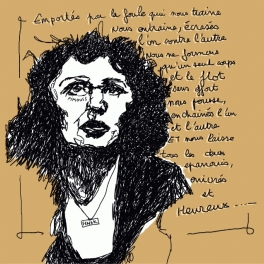 Emportés par la foule qui nous traine
nous entraine, écrasés
l'un contre l'autre
nous ne formons
qu'un seul corps
et le flot
sans effort
nous pousse,
enchainés l'un
et l'autre
ET nous laisse
tous les deux
epanouis,
enivrés
et
Heureux....